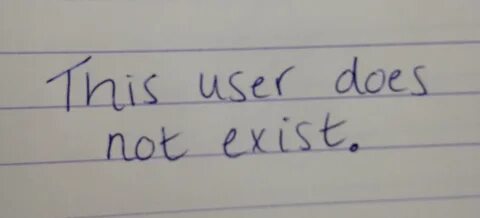 This user does
not exist.